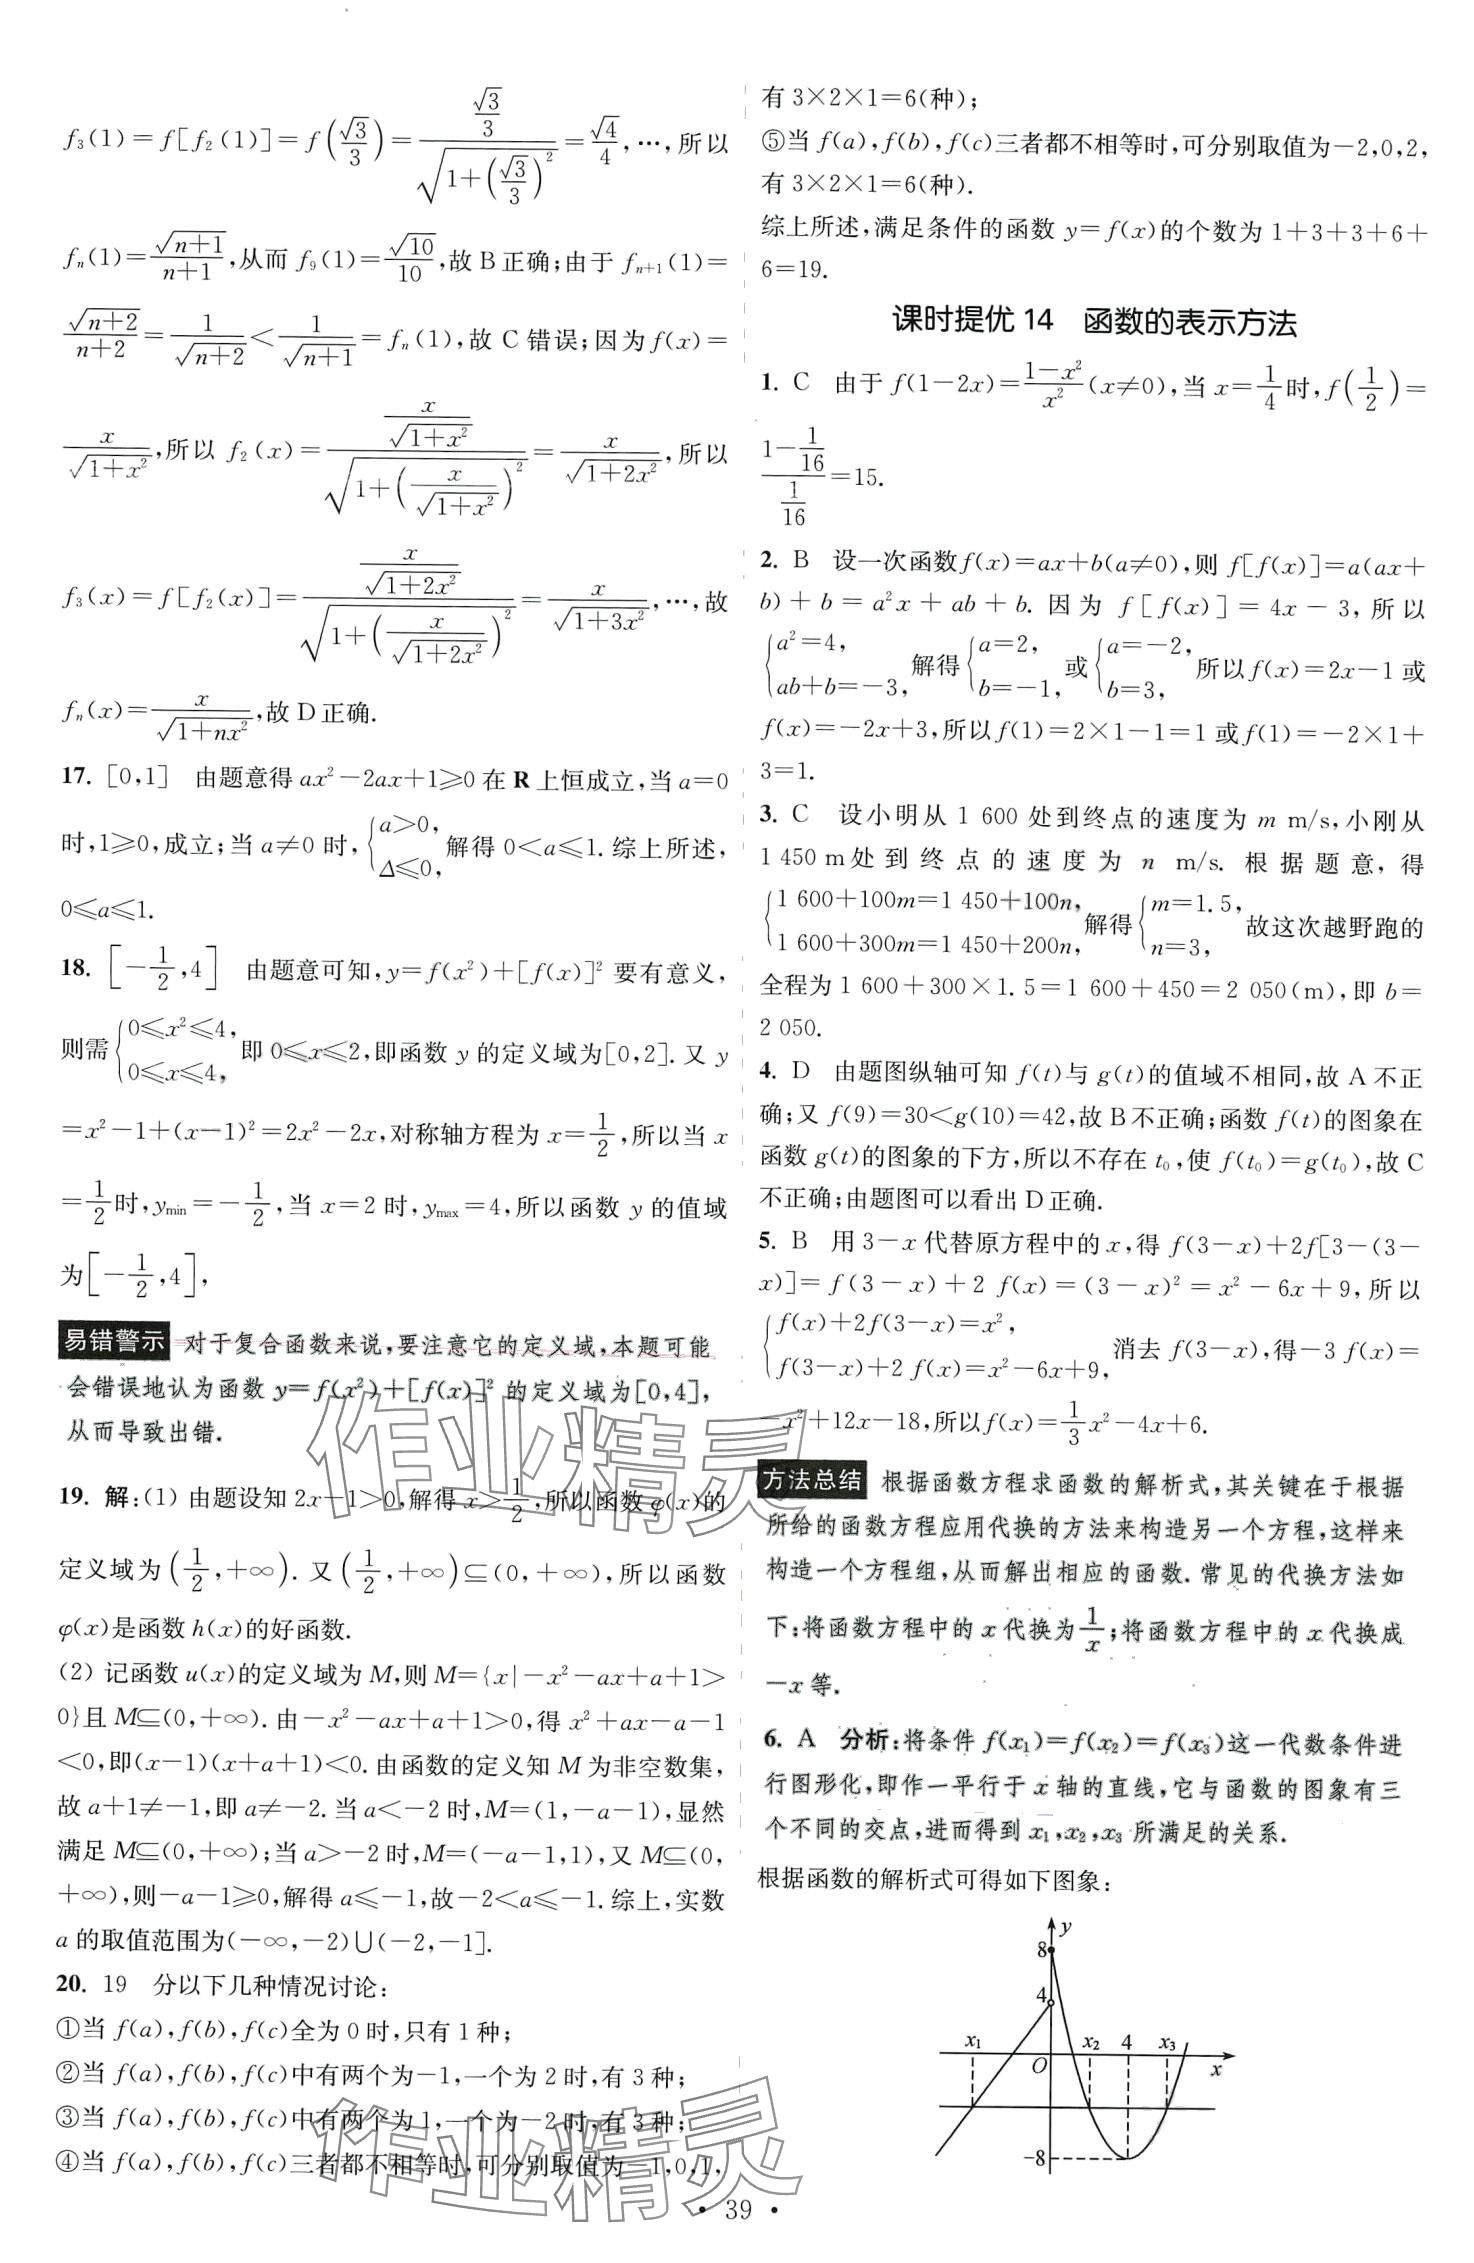 f₃(1)=f[f₂(1)]=f(√3/3)=(√3/3)/√(1+(√3/3)²)=√4/4,…,所以
fₙ(1)=√(n+1)/(n+1),从而 f₉(1)=√10/10,故 B 正确;由于 fₙ₊₁(1)=
√(n+2)/(n+2)=1/√(n+2)<1/√(n+1)=fₙ(1),故 C 错误;因为 f(x)=
x/√(1+x²),所以 f₂(x)=(x/√(1+x²))/√(1+(x/√(1+x²))²)=x/√(1+2x²),所以
f₃(x)=f[f₂(x)]=(x/√(1+2x²))/√(1+(x/√(1+2x²))²)=x/√(1+3x²),…,故
fₙ(x)=x/√(1+nx²),故 D 正确.
17. [0,1] 由题意得 ax²-2ax+1≥0 在 R 上恒成立,当 a=0
时,1≥0,成立;当 a≠0 时,{a>0, Δ≤0, 解得 0<a≤1. 综上所述,
0≤a≤1.
18. [-1/2,4] 由题意可知,y=f(x²)+[f(x)]² 要有意义,
则需{0≤x²≤4, 0≤x≤4, 即 0≤x≤2,即函数 y 的定义域为[0,2]. 又 y
=x²-1+(x-1)²=2x²-2x,对称轴方程为 x=1/2,所以当 x
=1/2时,y_min=-1/2,当 x=2 时,y_max=4,所以函数 y 的值域
为[-1/2,4],
易错警示 对于复合函数来说,要注意它的定义域,本题可能
会错误地认为函数 y=f(x²)+[f(x)]² 的定义域为[0,4],
从而导致出错.
19. 解:(1) 由题设知 2x-1>0,解得 x>1/2,所以函数 φ(x)的
定义域为(1/2,+∞). 又(1/2,+∞)⊆(0,+∞),所以函数
φ(x)是函数 h(x)的好函数.
(2) 记函数 u(x)的定义域为 M,则 M={x|-x²-ax+a+1>
0}且 M⊆(0,+∞). 由-x²-ax+a+1>0,得 x²+ax-a-1
<0,即(x-1)(x+a+1)<0. 由函数的定义知 M 为非空数集,
故 a+1≠-1,即 a≠-2. 当 a<-2 时,M=(1,-a-1),显然
满足 M⊆(0,+∞);当 a>-2 时,M=(-a-1,1),又 M⊆(0,
+∞),则-a-1≥0,解得 a≤-1,故-2<a≤-1. 综上,实数
a 的取值范围为(-∞,-2)∪(-2,-1].
20. 19 分以下几种情况讨论:
①当 f(a),f(b),f(c)全为 0 时,只有 1 种;
②当 f(a),f(b),f(c)中有两个为-1,一个为 2 时,有 3 种;
③当 f(a),f(b),f(c)中有两个为 1,一个为-2 时,有 3 种;
④当 f(a),f(b),f(c)三者都不相等时,可分别取值为-1,0,1,
有 3×2×1=6(种);
⑤当 f(a),f(b),f(c)三者都不相等时,可分别取值为-2,0,2,
有 3×2×1=6(种).
综上所述,满足条件的函数 y=f(x)的个数为 1+3+3+6+
6=19.
课时提优 14 函数的表示方法
1. C 由于 f(1-2x)=(1-x²)/x²(x≠0),当 x=1/4时,f(1/2)=
(1-1/16)/(1/16)=15.
2. B 设一次函数 f(x)=ax+b(a≠0),则 f[f(x)]=a(ax+
b)+b=a²x+ab+b. 因为 f[f(x)]=4x-3,所以
{a²=4, ab+b=-3, 解得{a=2, b=-1, 或{a=-2, b=3, 所以 f(x)=2x-1 或
f(x)=-2x+3,所以 f(1)=2×1-1=1 或 f(1)=-2×1+
3=1.
3. C 设小明从 1 600 处到终点的速度为 m m/s,小刚从
1 450 m 处到终点的速度为 n m/s. 根据题意,得
{1 600+100m=1 450+100n, 1 600+300m=1 450+200n, 解得{m=1.5, n=3, 故这次越野跑的
全程为 1 600+300×1.5=1 600+450=2 050(m),即 b=
2 050.
4. D 由题图纵轴可知 f(t)与 g(t)的值域不相同,故 A 不正
确;又 f(9)=30<g(10)=42,故 B 不正确;函数 f(t)的图象在
函数 g(t)的图象的下方,所以不存在 t₀,使 f(t₀)=g(t₀),故 C
不正确;由题图可以看出 D 正确.
5. B 用 3-x 代替原方程中的 x,得 f(3-x)+2f[3-(3-
x)]=f(3-x)+2 f(x)=(3-x)²=x²-6x+9,所以
{f(x)+2f(3-x)=x², f(3-x)+2 f(x)=x²-6x+9, 消去 f(3-x),得-3 f(x)=
-x²+12x-18,所以 f(x)=1/3x²-4x+6.
方法总结 根据函数方程求函数的解析式,其关键在于根据
所给的函数方程应用代换的方法来构造另一个方程,这样来
构造一个方程组,从而解出相应的函数. 常见的代换方法如
下:将函数方程中的 x 代换为1/x;将函数方程中的 x 代换成
-x 等.
6. A 分析:将条件 f(x₁)=f(x₂)=f(x₃)这一代数条件进
行图形化,即作一平行于 x 轴的直线,它与函数的图象有三
个不同的交点,进而得到 x₁,x₂,x₃ 所满足的关系.
根据函数的解析式可得如下图象:
y
8
4
x₁ O x₂ 4 x₃ x
-8
作业精灵
作业精灵
• 39 •